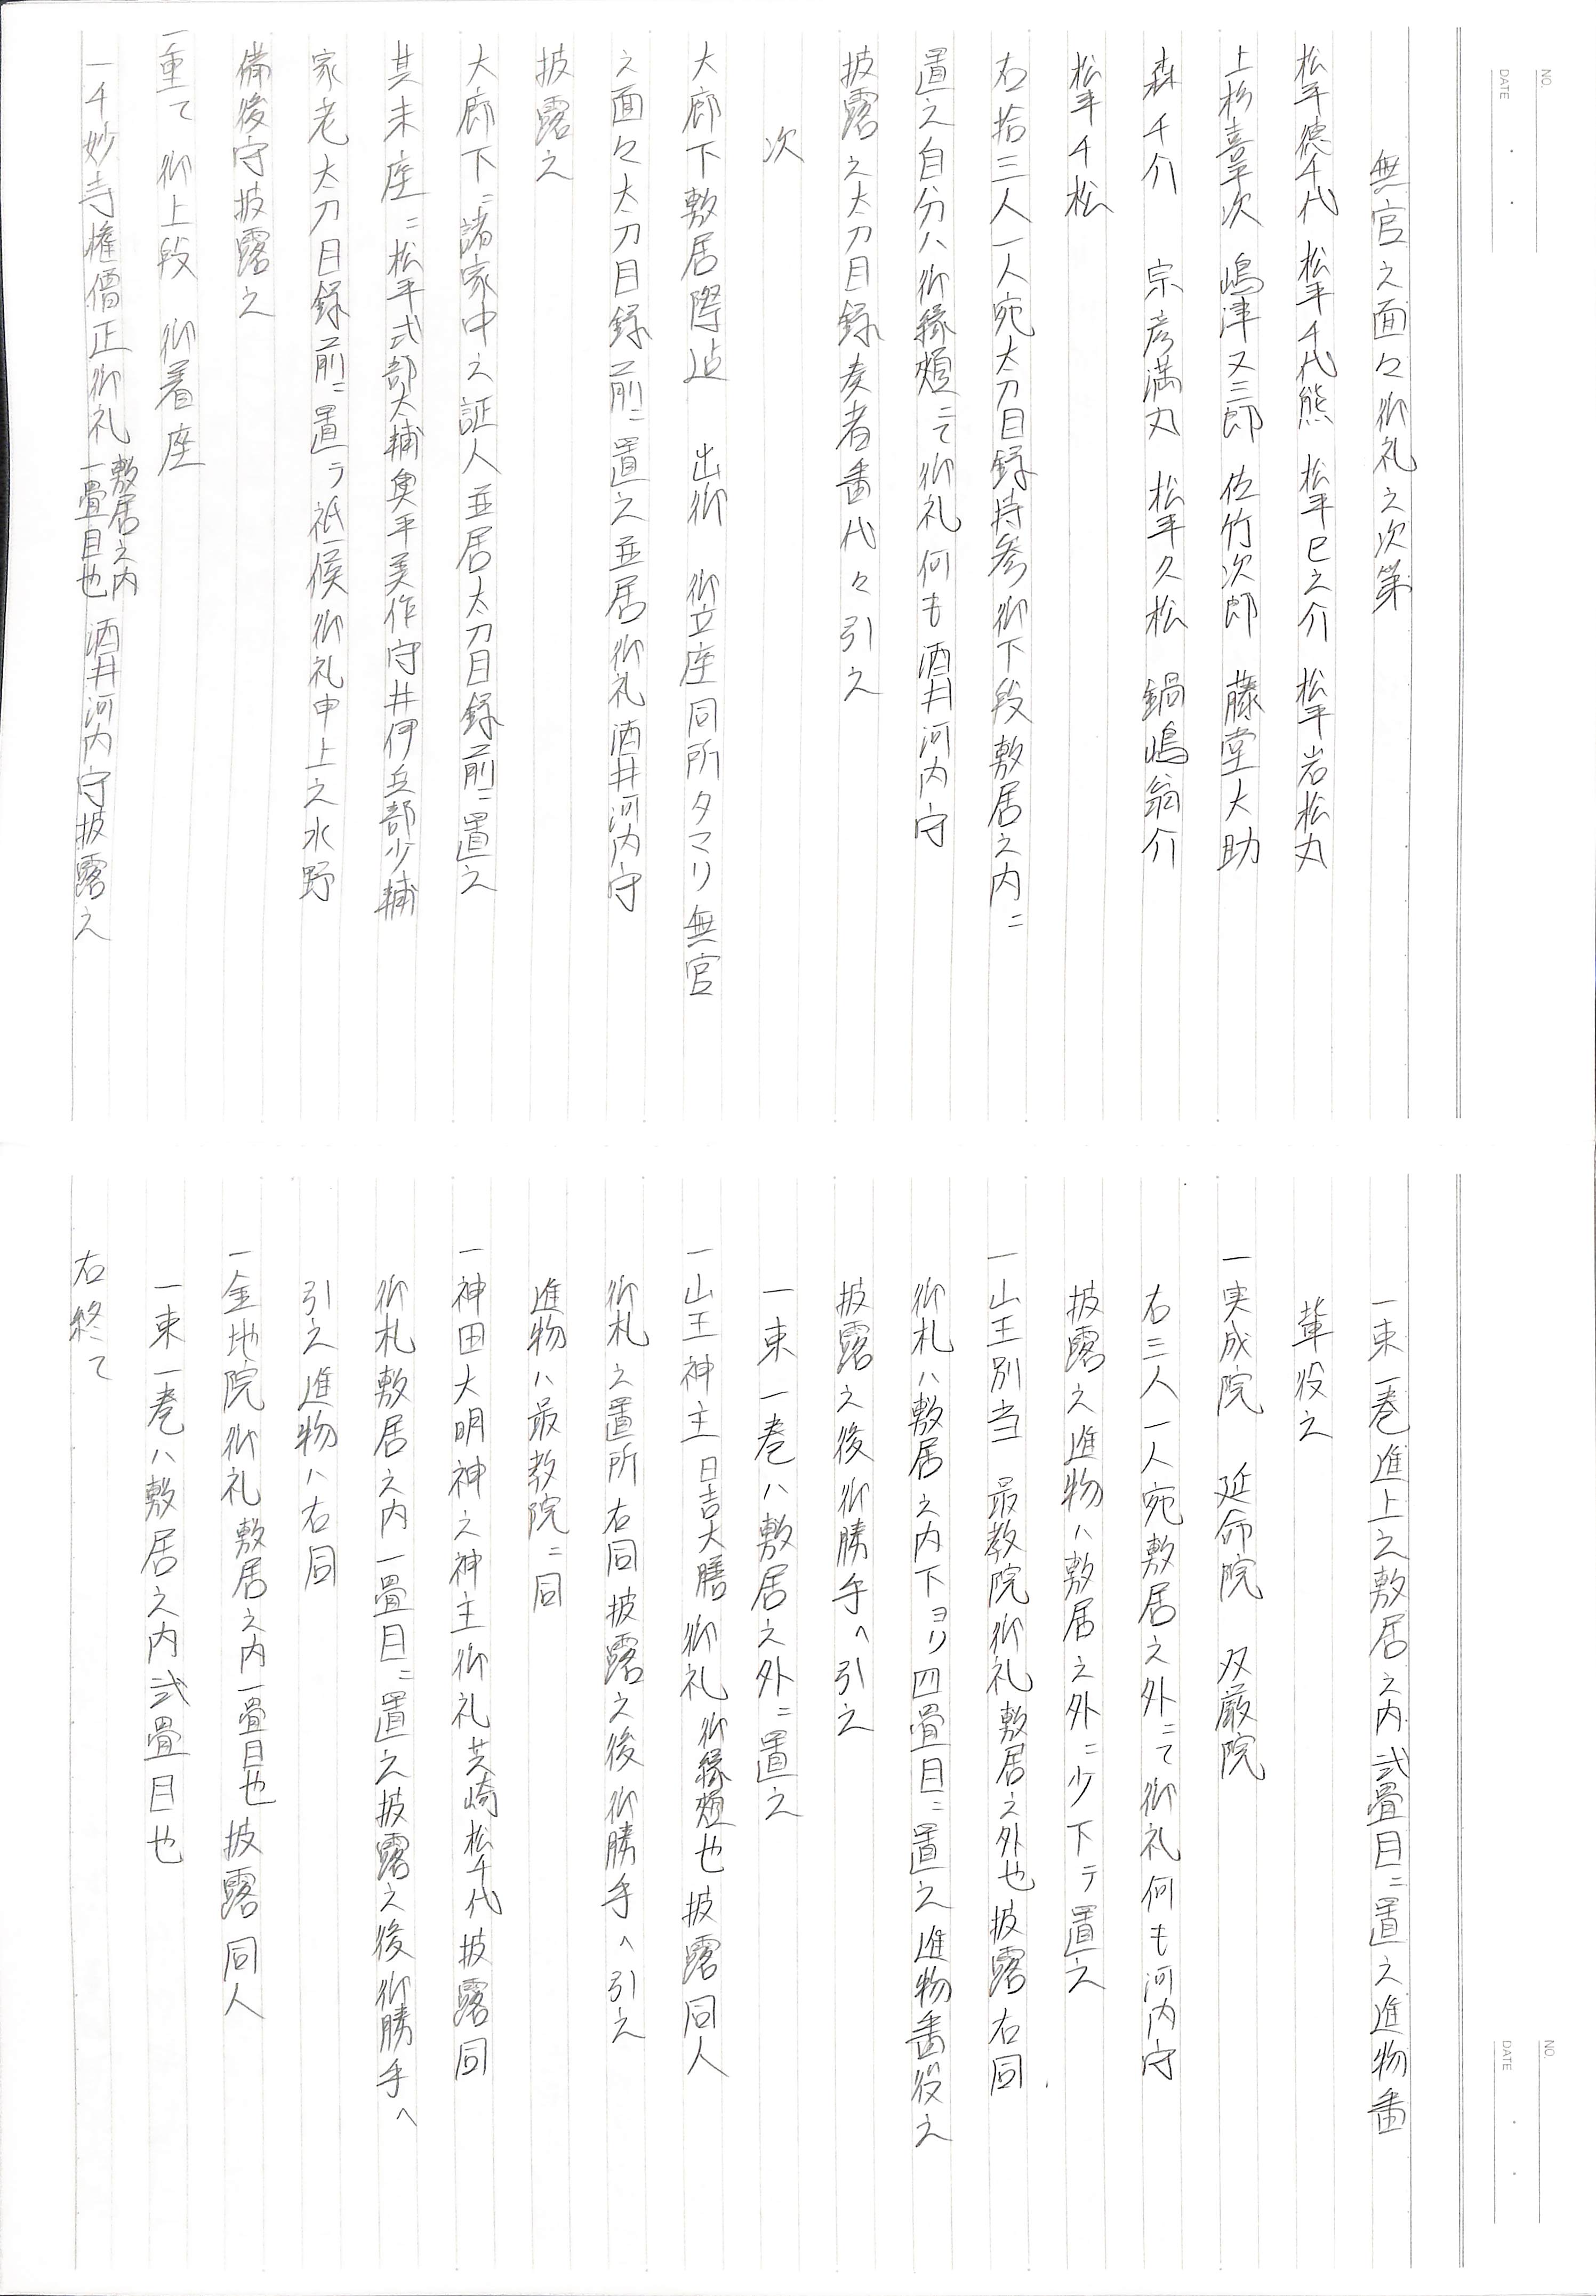 NO.
DATE
無官之面々御礼之次第
松平徳千代 松平千代熊 松平巳之介 松平岩松丸
上杉喜平次 嶋津又三郎 佐竹次郎 藤堂大助
森千介 宗彦満丸 松平久松 鍋嶋翁介
松平千松
右拾三人一人宛太刀目録持参御下段敷居之内ニ
置之自分ハ御縁頬ニて御礼何も酒井河内守
披露之太刀目録奏者番代々引之
次
大廊下敷居際迠 出御 御立座同所タマリ無官
之面々太刀目録前ニ置之並居御礼酒井河内守
披露之
大廊下ニ諸家中之証人並居太刀目録前ニ置之
其末座ニ松平式部太輔奥平美作守井伊兵部少輔
家老太刀目録前ニ置テ祗候御礼申上之水野
備後守披露之
一重て 御上段 御着座
一千妙寺権僧正御礼 敷居之内一畳目也 酒井河内守披露之
NO.
DATE
一束一巻進上之敷居之内弐畳目ニ置之進物番
輩役之
一実成院 延命院 双厳院
右三人一人宛敷居之外ニて御礼何も河内守
披露之進物ハ敷居之外ニ少下テ置之
一山王別当 最教院御礼敷居之外也披露右同
御札ハ敷居之内下ヨリ四畳目ニ置之進物番役之
披露之後御勝手へ引之
一束一巻ハ敷居之外ニ置之
一山王神主 日吉大膳御礼御縁頬也披露同人
御札之置所右同披露之後御勝手へ引之
進物ハ最教院ニ同
一神田大明神之神主御礼芝崎松千代披露同
御札敷居之内一畳目ニ置之披露之後御勝手へ
引之進物ハ右同
一金地院御礼敷居之内一畳目也披露同人
一束一巻ハ敷居之内弐畳目也
右終て